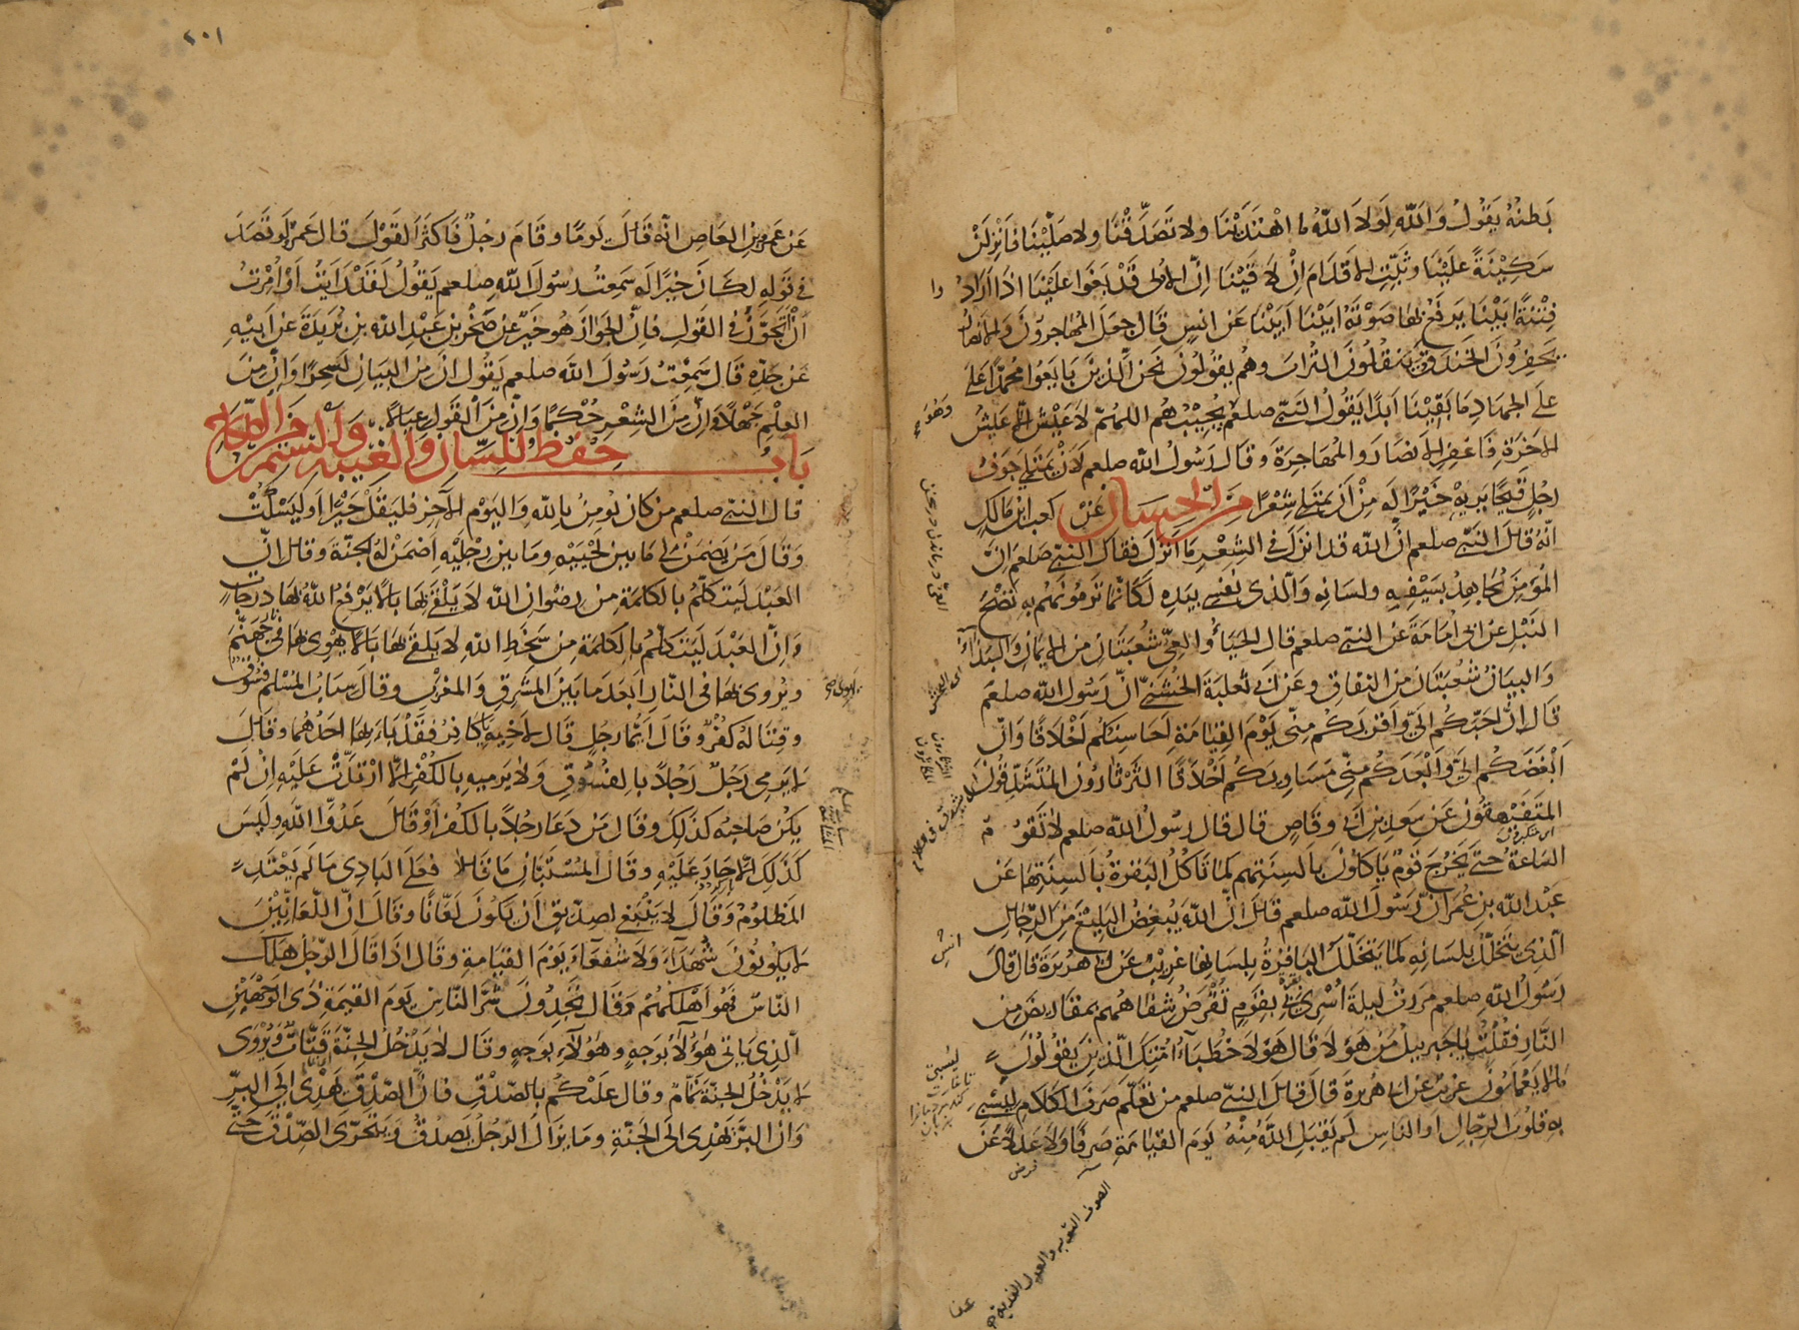 بَطنُهُ يَقُولُ وَاللّه لَولَا اللّهُ ما اهْتَدَيْنَا ولا تَصَدَّقْنَا ولا صَلَّيْنَا فَانْزِلَنْ
سَكِيْنَةً عَلَيْنَا وثَبِّتِ الاقدَامَ اِنْ لَاقَيْنَا اِنّ الاُلى قَدْ بَغَوا عَلَيْنَا اذَا اَرَادُوا
فِتْنَةً اَبَيْنَا يَرفَعُ بها صَوْتَهُ اَبَيْنَا اَبَيْنَا عَن انسٍ قَال جعَلَ المُهاجرونَ وَالانصَارُ
يَحفِرُونَ الخندقَ ويَنقُلُونَ التُرابَ وهُم يقُولُونَ نَحنُ الّذينَ بَايَعُوا مُحمّدًا عَلى
على الجهَادِ مَا بَقِيْنَا اَبدًا يَقُولُ النَبّي صلعم يُجِيْبُهُم اللهُمّ لَا عَيْشَ الّا عَيشُ
الاخرَةِ فَاغفِرِ الانصَارَ والمُهَاجِرَةَ وَقَال رَسُولُ اللّه صلعم لَاَنْ يَمتَلِى جَوَفُ
رجُلٍ قَيحًا يَرِيهُ خَيْرٌ لَه مِنْ اَن يَمتَلى شِعْرًا مِنَ الحِسَان عَنْ كعب ابن مَالكٍ
انّهُ قال النَبّي صلعم انّ اللّه قد انزَلَ فى الشِعْرِ مَا اَنْزَلَ فقال النبّي صلعم انَّ
المُؤمِنَ يُجَاهِدُ بسَيْفِهِ ولسَانِه وَالّذى نَفسِى بيَدِه لَكَانّمَا تَرمُونَهُم بِهِ نَضْحَ
النَبْلِ عن ابى اُمَامَةَ عَن النبّي صلعم قال الحَيَاءُ والعِىّ شُعبَتَانِ من الايمَانِ والبَذَاءُ
وَالبيَانُ شُعْبَتَانِ من النفَاق وعَنْ ابى ثَعلبَة الخُشَنيّ انّ رَسُولَ اللّه صلعم
قَال انّ اَحَبّكُم اِلىَّ وَاَقرَبَكُم مِنّى يَوْمَ القِيَامَةِ اَحَاسِنكُم اَخْلَاقًا وَانّ
اَبْغَضَكُم الىَّ وَاَبْعَدَكُم مِنّى مَسَاوِيكُم اَخْلَاقًا الثَرْثَارُونَ المُتَشَدِّقُونَ
المتَفَيْهِقُون عَن سَعدِ بنِ ابى وقاصٍ قال قال رسُولُ اللّه صلعم لا تَقُومُ
السَاعَةُ حتّى يَخْرُجَ قَومٌ يَاكلُونَ بِاَلسِنَتِهِم كمَا تَاكُلُ البَقَرَةُ بِاَلسِنَتِهَا عَن
عَبْد اللّه بن عُمَرَ انّ رَسُولَ اللّه صلعم قال انّ اللّهَ يُبغِضُ البَلِيغَ مِنَ الرّجَالِ
الّذِى يَتخَلّلُ بلسَانِهِ كمَا يَتخَلّلُ البَاقِرَةُ بِلسَانِهَا غريبٌ عَن ابى هُريرَةَ قال قال
رَسُولُ اللّه صلعم مرَرتُ لَيلةَ اُسْرِىَ بى بقَومٍ تُقْرَضُ شفَاهُهُم بمقَاريضَ مِن
النَّارِ فَقُلْتُ يا جَبرِيلُ مَن هَؤُلَاءِ قَال هَؤُلَاء خُطَبَاءُ اُمّتِكَ الّذينَ يقُولُونَ
مَا لا يَعْمَلُونَ غريبٌ عَن ابى هُريرةَ قَالَ قال النبّي صلعم من تعَلّمَ صَرفَ الكَلامِ ليَسْبِىَ
بِه قلُوبَ الرّجَالِ اَو النَاسِ لَم يَقبَلِ اللّهُ مِنْهُ يَومَ القيَامَةِ صَرفًا وَلا عَدلًا عَنْ
٢٠١
عَن عَمروبنِ العَاصِ انّه قَالَ يَومًا وقَامَ رجُلٌ فَاكثرَ القَوْلَ قال عَمرٌو لَو قَصَدَ
فى قَولِهِ لكَانَ خَيْرًا لَه سَمِعتُ رسُولَ اللّهِ صلعم يَقُولُ لَقَدْ رَاَيتُ اَوْ اُمِرْتُ
اَنْ اَتَجَوَّزَ فى القَولِ فانّ الجَوَازَ هُو خيرٌ عن صَخْرِ بن عَبْدِ اللّه بن بُرَيدَةَ عَن اَبيْهِ
عَن جدّه قَال سَمِعْتُ رَسُولَ اللّه صلعم يَقُول انّ مِن البيَانِ لَسِحرًا وَانّ مِنَ
العِلْمِ جَهْلًا وَانّ مِنَ الشعْرِ حُكْمًا وَانّ مِنَ القَولِ عيَالًا
بَابُ حفظ اللِسَان والغِيبَه والشَتم
قال النبّي صلعم من كان يُومِنُ باللّهِ وَاليَوْم الآخرِ فليَقُلْ خَيْرًا اَو ليَسْكُتْ
وَقَالَ مَن يَضمَنْ لى مَا بين لَحْيَيْهِ ومَا بين رجْلَيْهِ اَضمَنْ لهُ الجنّةَ وقال انّ
العَبْدَ لَيَتكَلّمُ بالكلمَةِ مِن رِضْوانِ اللّه لَا يُلْقى لَهَا بالًا يَرْفَعُ اللّهُ بهَا درجَاتٍ
وَانّ العَبْدَ لَيَتكلّمُ بالكَلمَةِ مِن سَخَطِ اللّهِ لا يُلقى لهَا بَالًا يَهْوِى بهَا فى جَهنّمَ
ويُروى بهَا فى النّارِ اَبعَدَ مَا بَيْنَ المَشْرِق وَالمغرِب وقالَ سِبَابُ المُسْلم فُسُوقٌ
وقتَالهُ كُفْرٌ وقالَ ايّما رجُلٍ قَال لاَخِيهِ يا كافِرُ فقَدْ بَاءَ بها احدُهُما وقَالَ
لا يَرمِى رَجُلٌ رَجُلًا بالفُسُوقِ وَلا يَرميهِ بالكُفْرِ الّا ارْتَدّتْ عَلَيْهِ اِنْ لَم
يكُنْ صَاحِبُه كذَلكَ وقال مَن دَعَا رجُلًا بالكُفْرِ اَوْ قَالَ عَدُوَّ اللّهِ وليسَ
كَذَلِكَ الّا حَارَ عَلَيْهِ وقَالَ المُسْتَبّانِ مَا قَالا فعَلَى البَادِى مَا لَم يَعْتَدِ
المَظلُومُ وقَالَ لا يَنْبَغى لصِدّيقٍ اَن يكُونَ لعّانًا وقَالَ انّ اللّعانِيْنَ
لا يكُونُونَ شُهَدَاءَ وَلَا شفعَاءَ يَوْمَ القيَامةِ وقَال اذَا قَال الرّجُلُ هَلكَ
النّاسُ فَهُوَ اَهلَكُهُم وَقَال تَجِدُونَ شَرَّ النّاسِ يَومَ القيمَةِ ذَى الوَجْهَيْنِ
الّذِى يَاتى هَؤُلَاءِ بوَجهٍ وهَؤُلَاءِ بوَجهٍ وقَال لا يَدْخُلُ الجنّةَ قتّاتٌ ويُرْوى
لا يَدْخُلُ الجنّةَ نَمّامٌ وقال علَيْكُم بالصّدْقِ فانّ الصّدْقَ يَهْدِى اِلىَ البِرِّ
وَانّ البِرَّ يَهْدِى الى الجَنّةِ ومَا يزَالُ الرَجُلُ يَصدُقُ ويتَحَرّى الصّدقَ حَتّى